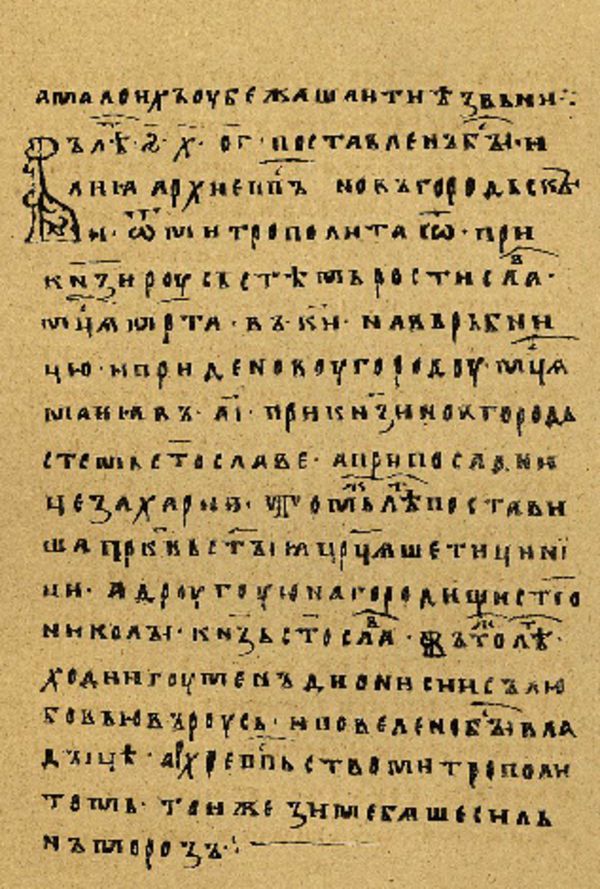 а мало ихъ оубежаша а нти ѣзвьни ⁘
Въ лѣ҇ ҂ѕ҃ х҃ ог҃ поставленъ бы҇ · и
лиꙗ архиеп҃пъ новъгородьскꙑ
и · ѿ митрополита іѡ҃ · при
кн҃зи роусьстѣмь ростисла ⷡ ·
мц҇ѧ мр҃та · въ · ки҃ · на вьрьбни
цю · и приде новоугородоу · мц҇ѧ
маиꙗ въ · аі҃ · при кн҃зи новгородь
стемь ст҃ославе · а при посадни
це захарии · Томь ⷤ лѣ ⷮ постави
ша црк҃вь ст҃ꙑꙗ трц҃ѧ шетициниі
ци · а дроугоую на городищи ст҃го
николꙑ · кн҃зь ст҃осла ⷡ · Въ то ⷤ лѣ ⷮ ·
ходи игоуменъ дионисии съ лю
бовью въ роусь · и повелено бы҇ вла
дꙑцѣ · архиеп҃пьство митрополи
томь · тои же зиме бѧше силь
нъ морозъ ⁘